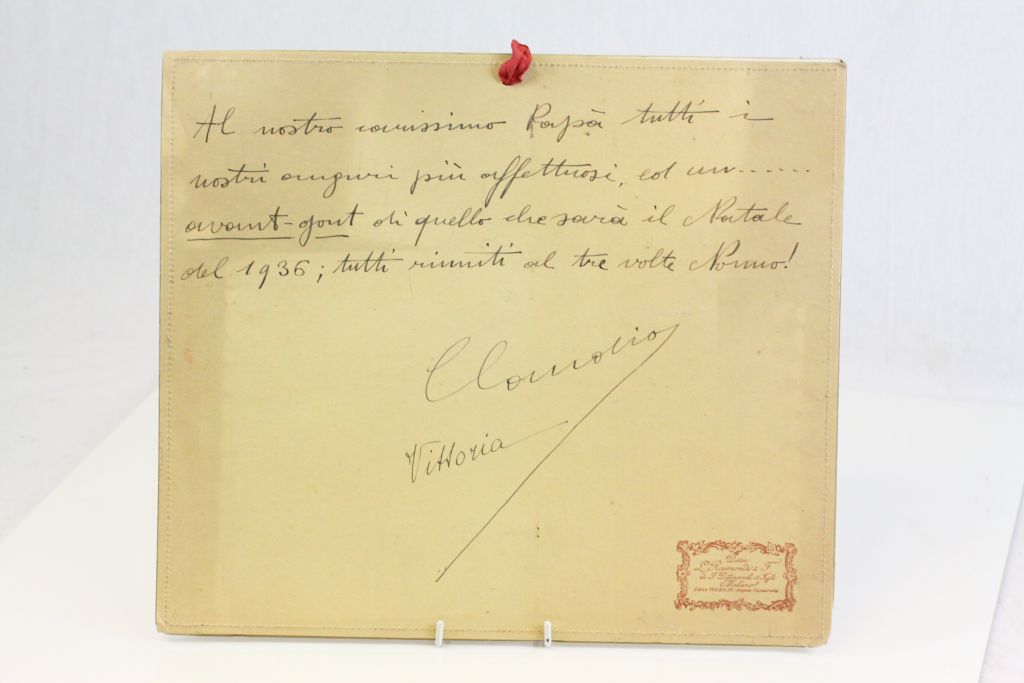 Al nostro carissimo Papà tutti i
nostri auguri più affettuosi, ed un......
avant-gout di quello che sarà il Natale
del 1936; tutti riuniti al tre volte Nonno!
Claudio
Vittoria
Ditta
L. Raimondi & F.
Milano